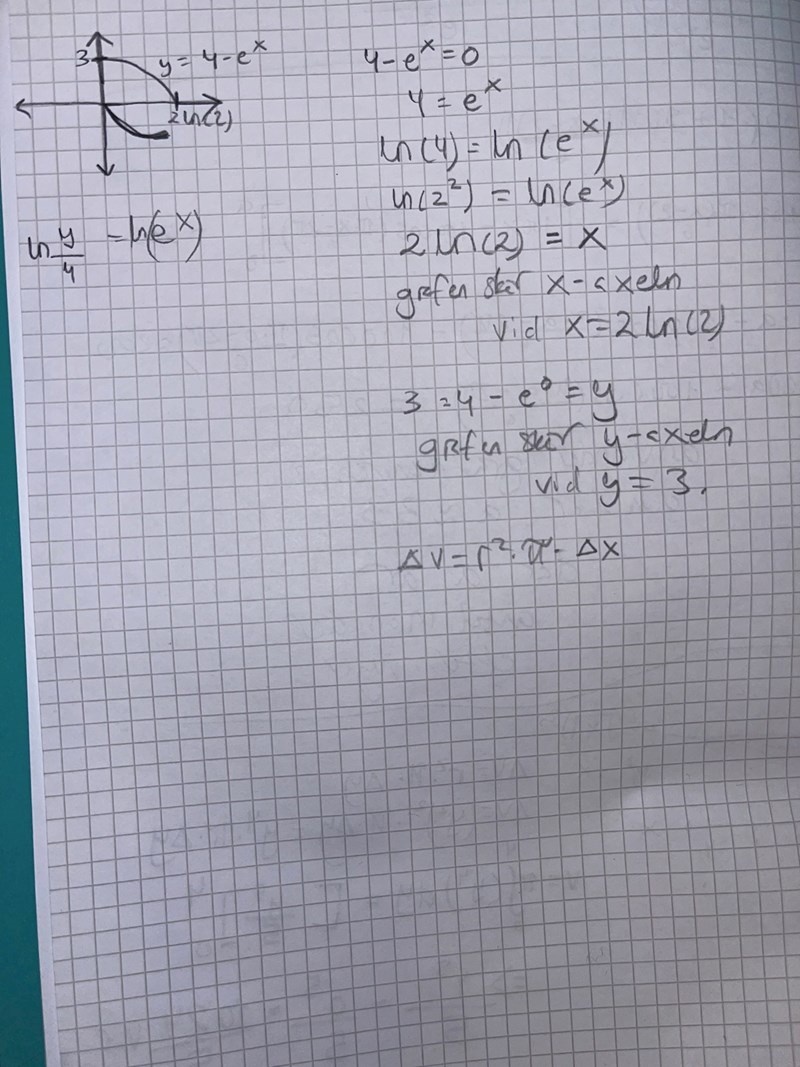 3
y = 4 - e^x
2 ln(2)
ln y/4 = ln(e^x)
4 - e^x = 0
4 = e^x
ln(4) = ln(e^x)
ln(2²) = ln(e^x)
2 ln(2) = x
grafen skär x-axeln
vid x = 2 ln(2)
3 = 4 - e⁰ = y
grafen skär y-axeln
vid y = 3.
ΔV = r² · π · Δx